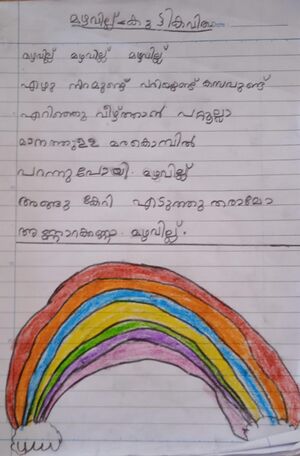 മഴവില്ല് - കുട്ടികവിത
മഴവില്ല് മഴവില്ല് മഴവില്ല്
ഏഴു നിറമുണ്ട് പടിയുണ്ട് കസവുണ്ട്
എറിഞ്ഞു വീഴ്ത്താൻ പറ്റൂല്ലാ
മാനത്തുള്ള മരകൊമ്പിൽ
പറന്നുപോയി മഴവില്ല്
അങ്ങു കേറി എടുത്തു തരാമോ
അണ്ണാറക്കണ്ണാ മഴവില്ല്.